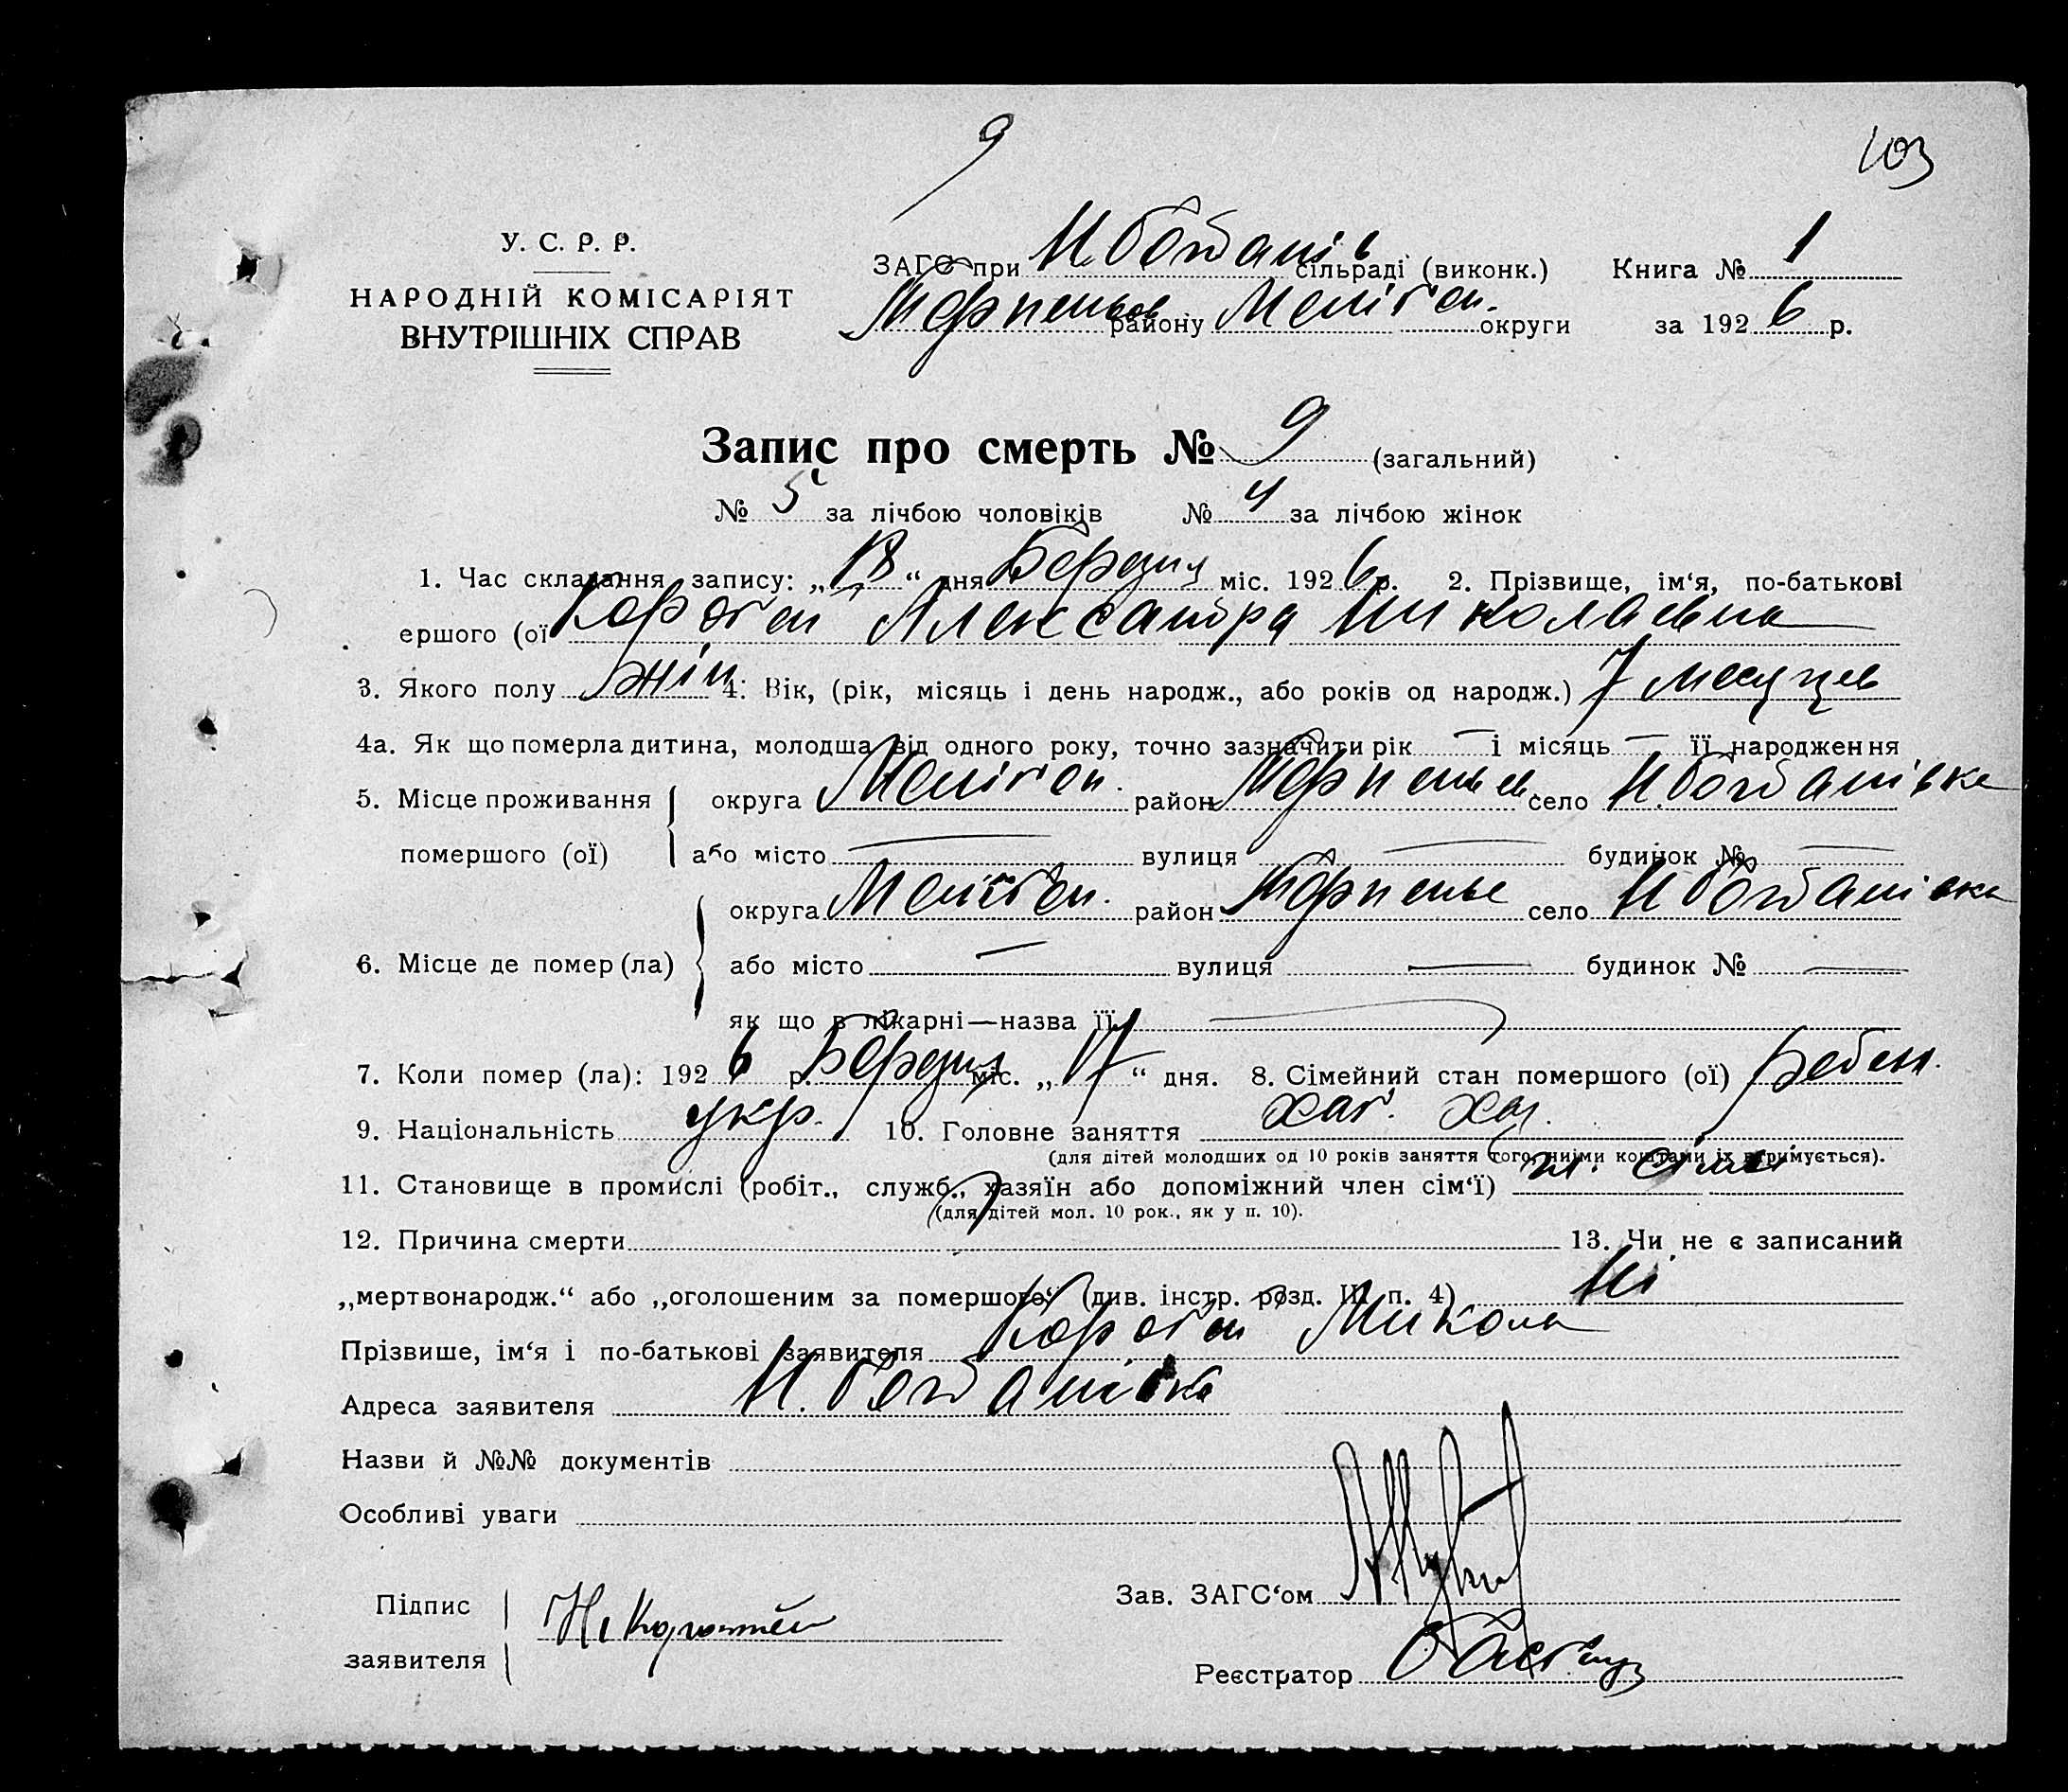 9
103
У. С. Р. Р.
НАРОДНІЙ КОМІСАРІЯТ
ВНУТРІШНІХ СПРАВ
ЗАГС при Н. Богданів сільраді (виконк.) Книга № 1
Терпеньев району Меліт'оп. округи за 1926 р.
Запис про смерть № 9 (загальний)
№ 5 за лічбою чоловіків № 4 за лічбою жінок
1. Час складання запису: „18“ дня Березня міс. 1926 р. 2. Прізвище, ім‘я, по-батькові
ершого (ої Александра Николаевна
3. Якого полу жін 4. Вік, (рік, місяць і день народж., або років од народж.) 7 месяцев
4а. Як що померла дитина, молодша від одного року, точно зазначити рік — і місяць — її народження
5. Місце проживання округа Меліт'оп. район село Н. Богданівка
помершого (ої) або місто — вулиця — будинок № —
округа Меліт'оп. район Терпенье село Н Богданівка
6. Місце де помер (ла) або місто — вулиця — будинок № —
як що в лікарні—назва її —
7. Коли помер (ла): 1926 р. Березня міс. „17“ дня. 8. Сімейний стан помершого (ої) ребен.
9. Національність укр. 10. Головне заняття
(для дітей молодших од 10 років заняття того, чиїми коштами їх втримується).
11. Становище в промислі (робіт., служб., хазяїн або допоміжний член сім‘ї) чл. сімї
(для дітей мол. 10 рок., як у п. 10).
12. Причина смерти 13. Чи не є записаний
„мертвонародж.“ або „оголошеним за помершого“ (див. інстр. розд. III п. 4) Ні
Прізвише, ім‘я і по-батькові заявителя Микола
Адреса заявителя Н. Богданівка
Назви й №№ документів
Особливі уваги
Підпис
заявителя
Зав. ЗАГС‘ом
Реєстратор